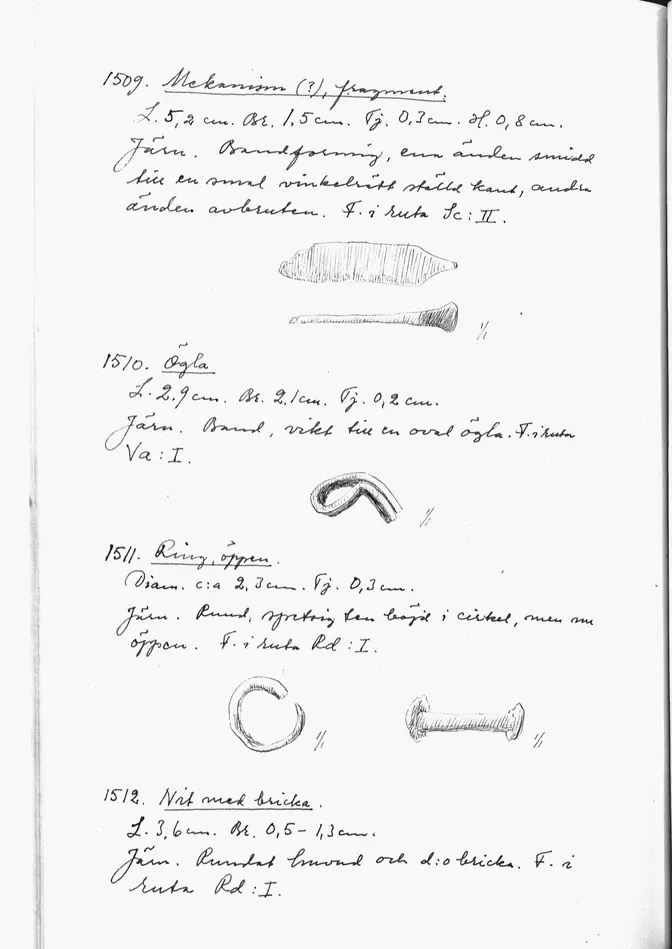 1509. Mekanism (?), fragment.
L. 5,2 cm. Br. 1,5 cm. Tj. 0,3 cm. H. 0,8 cm.
Järn. Bandformig, ena änden smidd
till en smal vinkelrätt ställd kant, andra
änden avbruten. F. i ruta Sc : II.
1/1
1510. Ögla
L. 2.9 cm. Br. 2.1 cm. Tj. 0,2 cm.
Järn. Band, vikt till en oval ögla. F. i ruta
Va : I.
1/1
1511. Ring, öppen.
Diam. c:a 2,3 cm. Tj. 0,3 cm.
Järn. Rund, spetsig ten böjd i cirkel, men nu
öppen. F. i ruta Rd : I.
1/1 1/1
1512. Nit med bricka.
L. 3,6 cm. Br. 0,5 - 1,3 cm.
Järn. Rundat huvud och d:o bricka. F. i
ruta Rd : I.